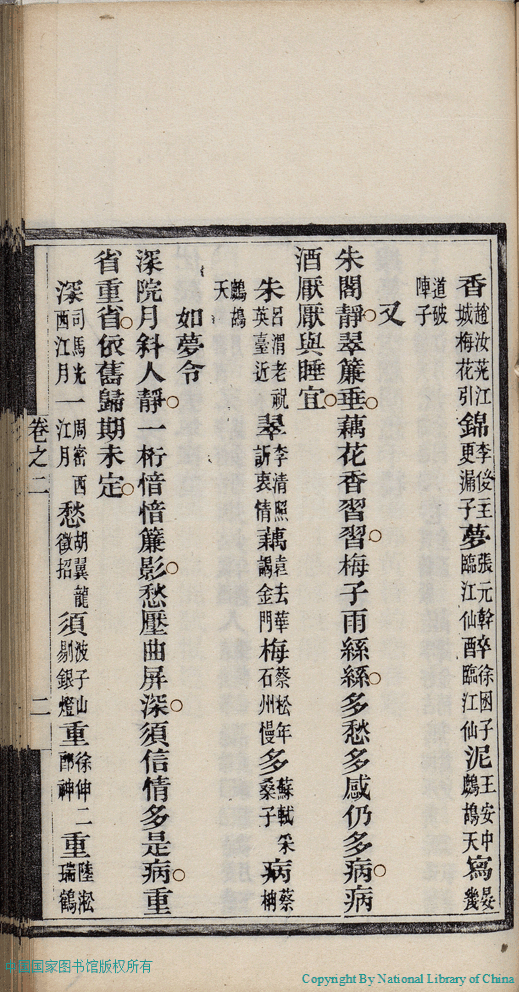 香趙汝茪江城梅花引錦李俊主更漏子夢張元幹臨江仙醉徐囦子臨江仙泥王安中鷓鴣天寫晏幾
道破陣子
又
朱閣靜翠簾垂藕花香習習梅子雨絲絲多愁多感仍多病病
酒厭厭與睡宜
朱呂渭老祝英臺近翠李清照訴衷情藕袁去華謁金門梅蔡松年石州慢多蘇軾采桑子病蔡柟
鷓鴣天
如夢令
深院月斜人靜一桁愔愔簾影愁壓曲屏深須信情多是病重
省重省依舊歸期未定
深司馬光西江月一周密西江月愁胡翼龍徵招須波子山剔銀燈重徐伸二郎神重陸淞瑞鶴
卷之二
二
中国国家图书馆版权所有
Copyright By National Library of China